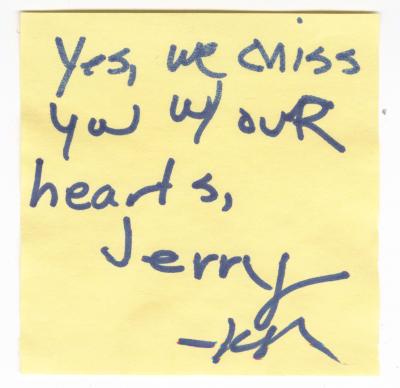 Yes, we miss
you w/ ouR
hearts,
Jerry